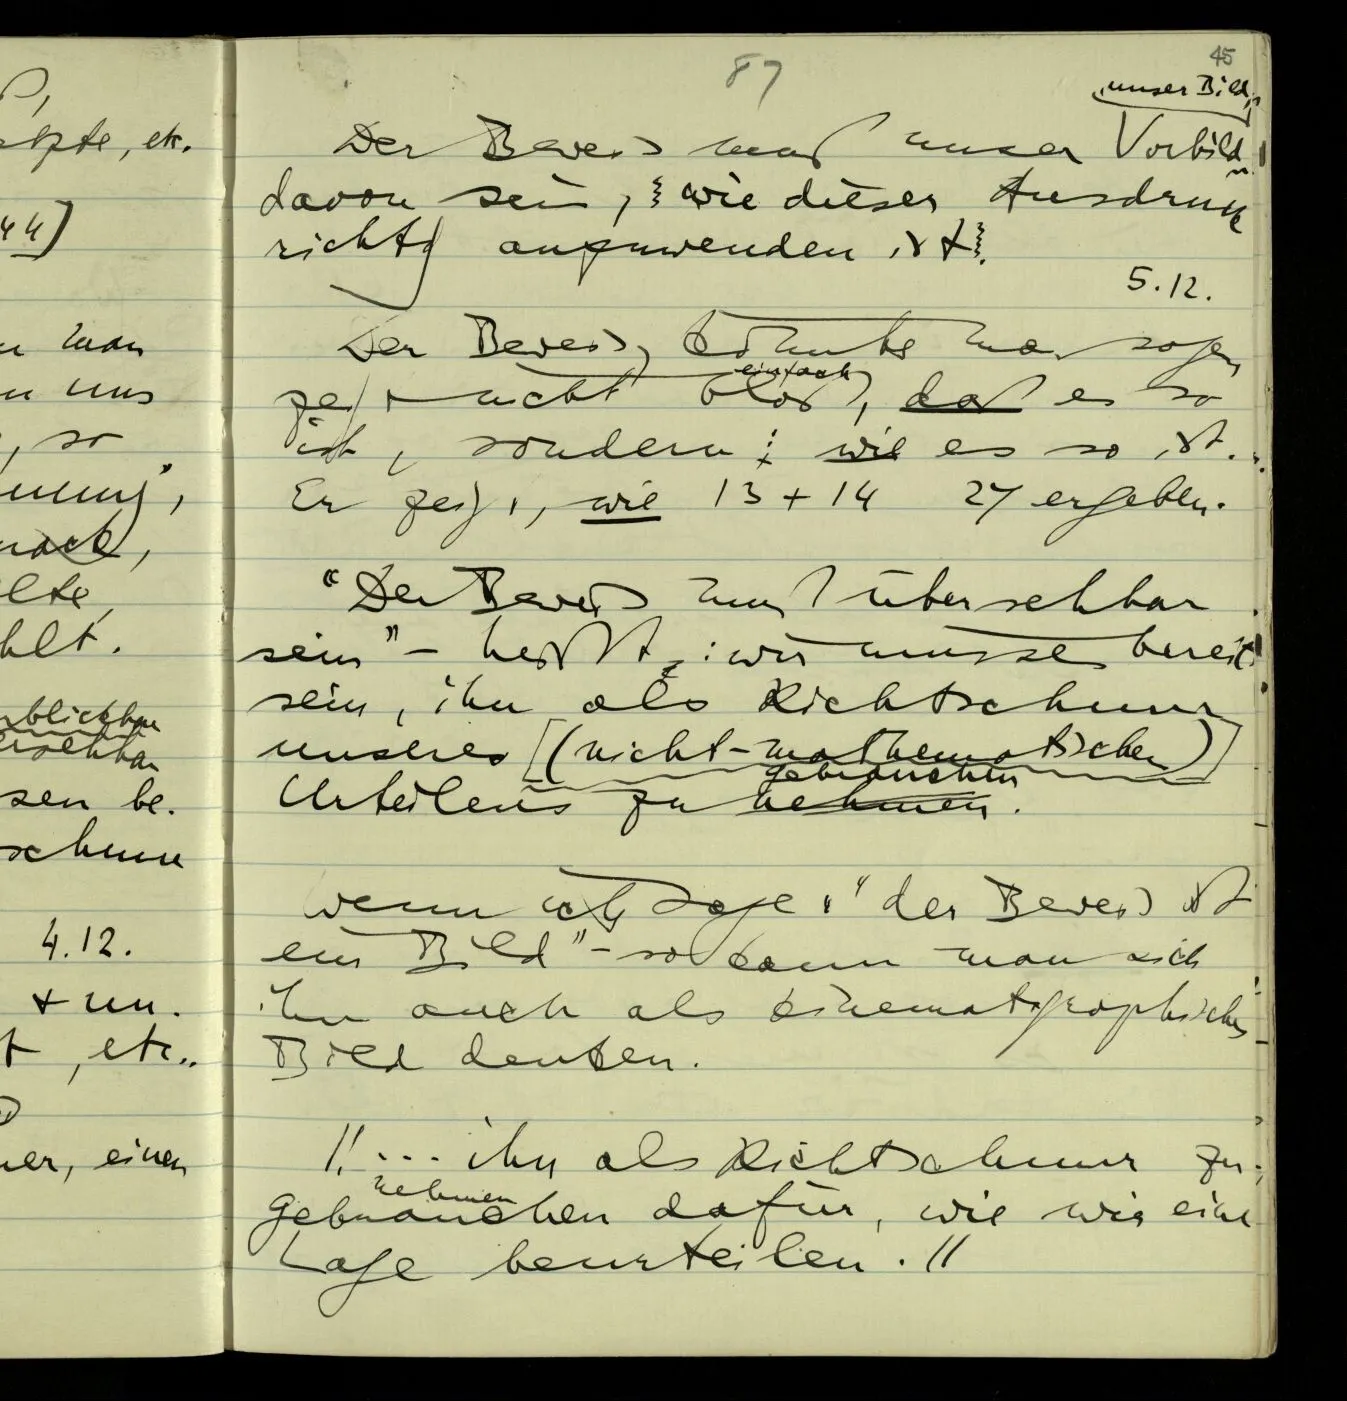 etzte, etc.
44]
man
uns
, so
,
,
elte,
hlt.
blickbar
ersehbar
sen be-
schnur
4.12.
+ un-
t, etc..
er, einen
87
45
"unser Bild"
Der Beweis muß unser Vorbild
davon sein, wie dieser Ausdruck
richtig anzuwenden ist.
5.12.
Der Beweis, könnte man sagen,
zeigt nicht bloß, daß es so
einfach
ist, sondern: wie es so ist.
Er zeigt, wie 13 + 14 27 ergeben.
"Der Beweis muß übersehbar
sein" – heißt: wir müssen bereit
sein, ihn als Richtschnur
unseres [(nicht-mathematischen)]
gebrauchen
Urteilens zu nehmen.
Wenn ich sage: "der Beweis ist
ein Bild" – so kann man sich
ihn auch als kinematographisches
Bild denken.
// ... ihn als Richtschnur zu
nehmen
gebrauchen dafür, wie wir eine
Lage beurteilen. //